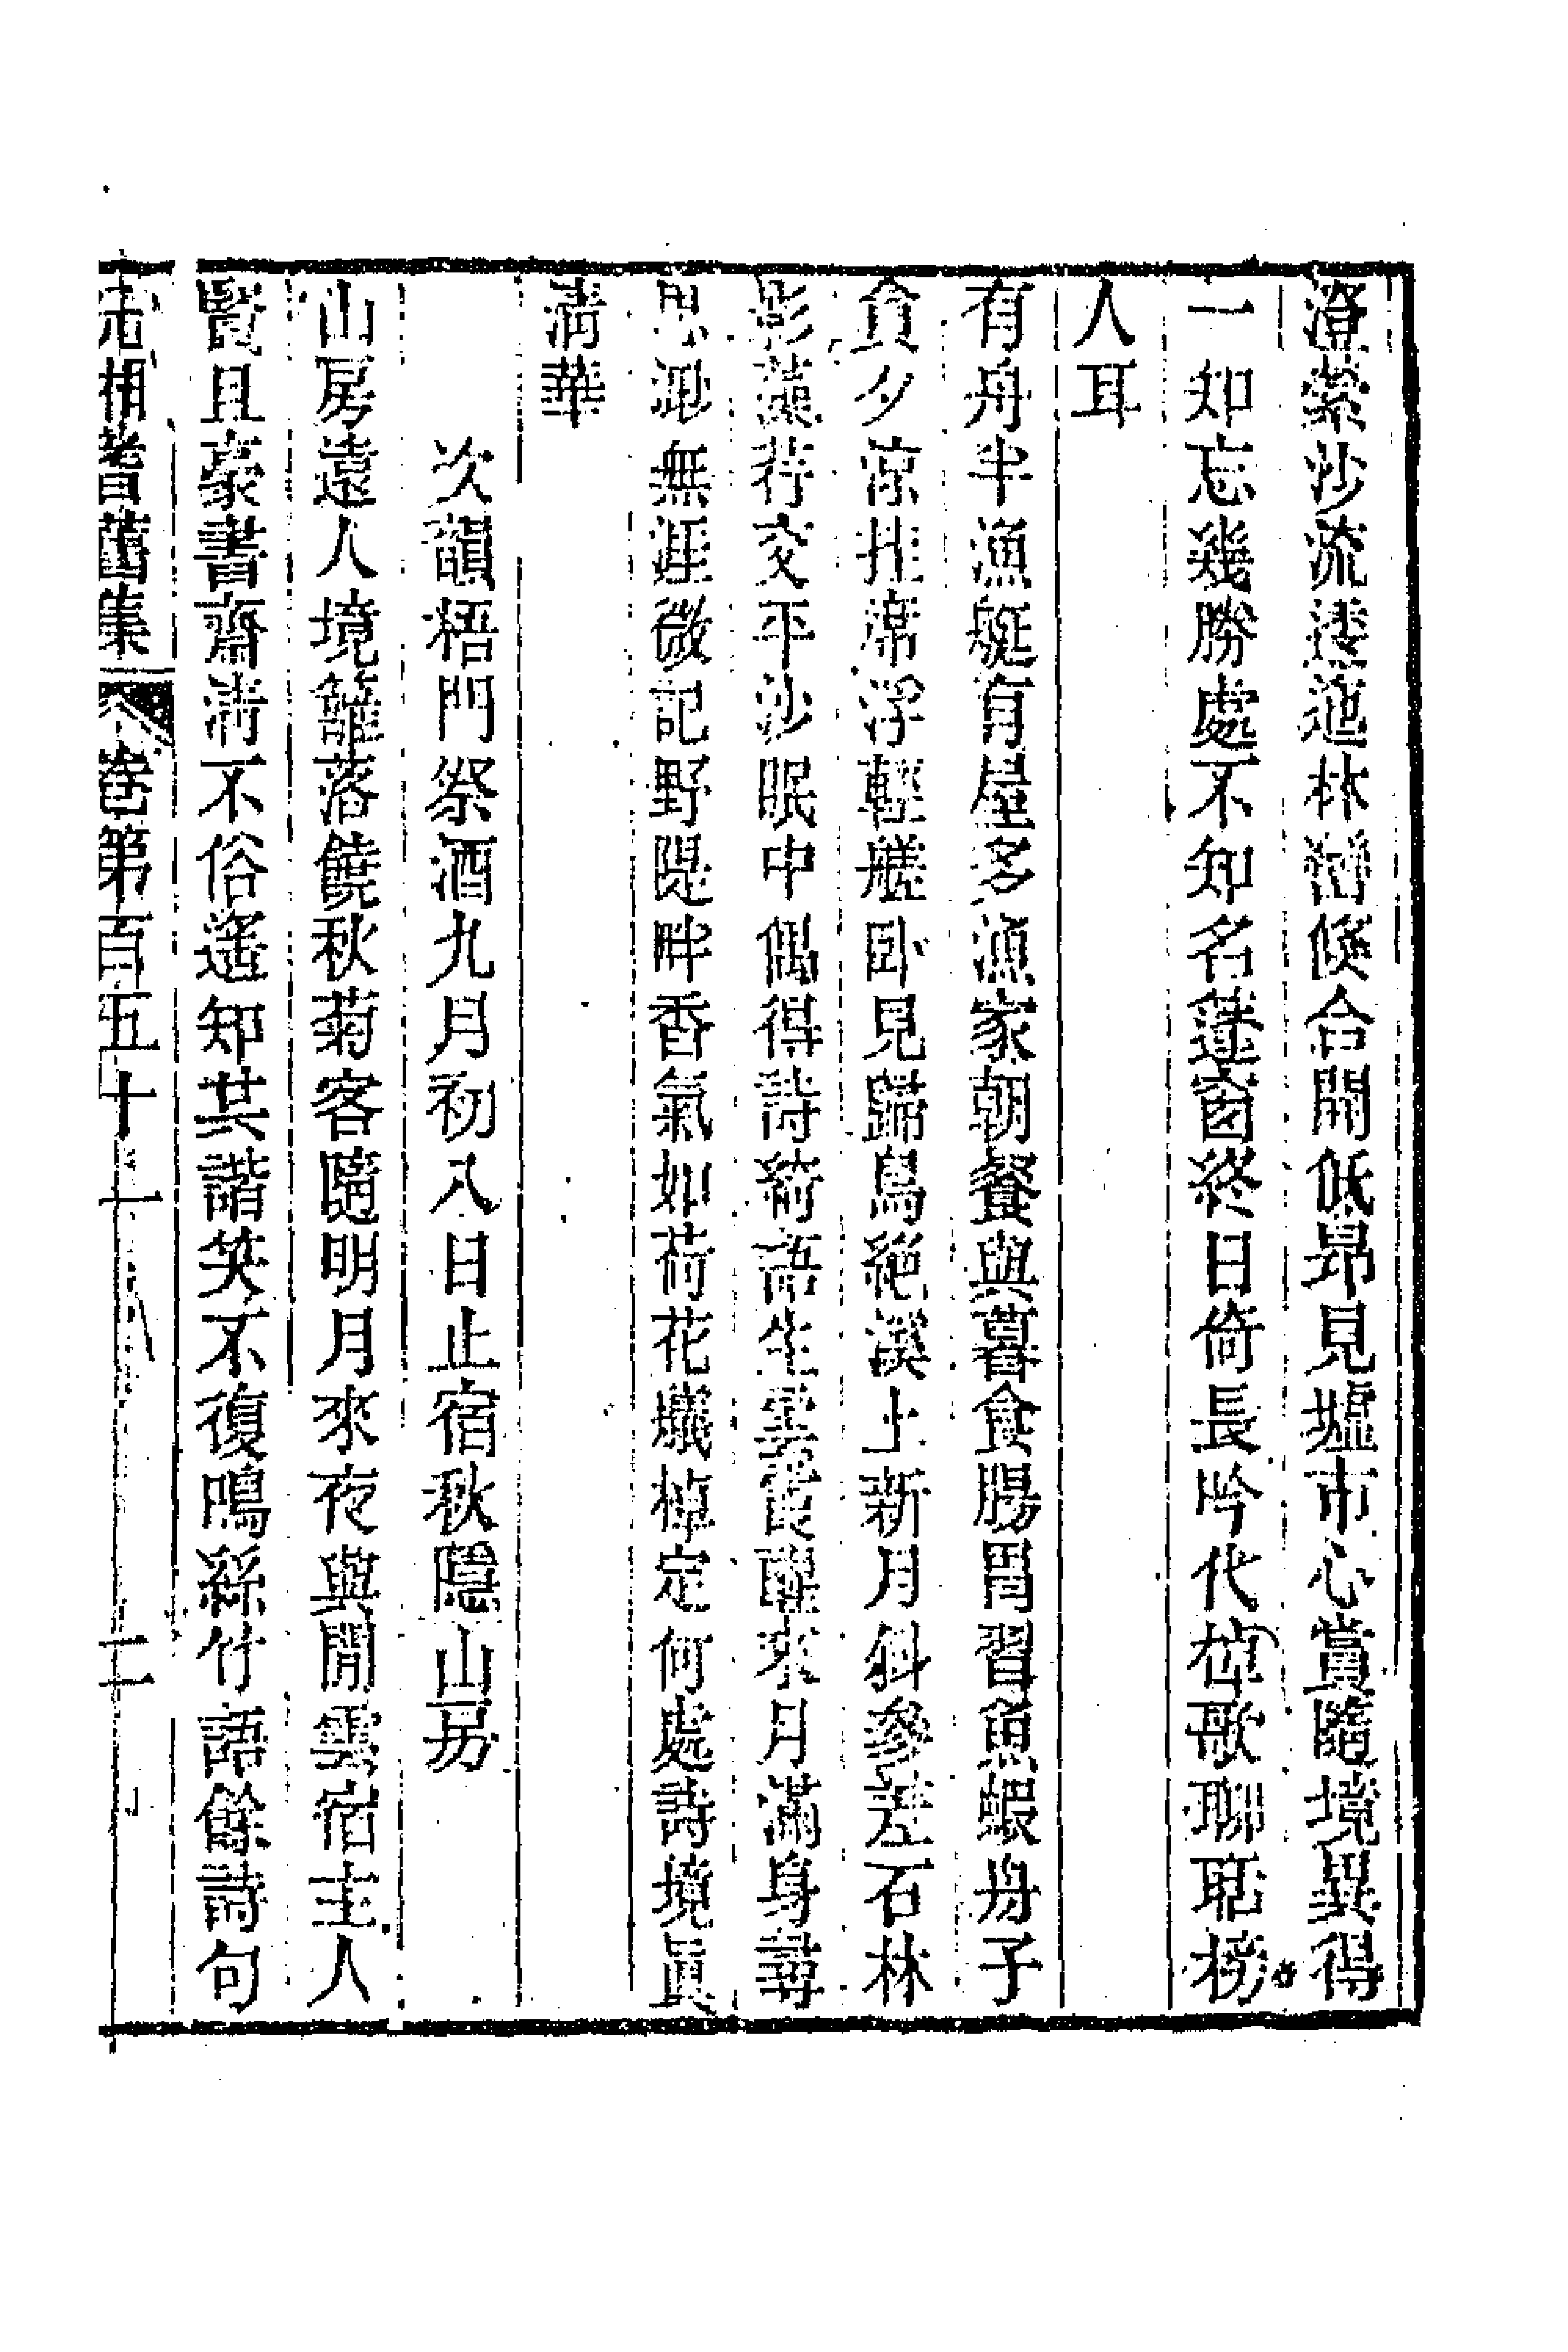 澄縈沙流逶迤林豁倏合開低昂見墟市心賞隨境異得
一如忘幾勝處不知名蓬窗終日倚長吟代棹歌聊聒榜
人耳
有舟半漁艇有屋多漁家朝餐與暮食腸胃習魚蝦舟子
貪夕涼挂席浮輕艖臥見歸鳥絕溪上新月斜參差石林
影藻荇交平沙眠中偶得詩綺語生雲霞醒來月滿身尋
思渺無涯微記野隄畔香氣如荷花艤棹定何處詩境眞
淸華
次韻梧門祭酒九月初八日止宿秋隱山房
山房遠人境籬落饒秋菊客隨明月來夜與閒雲宿主人
賢且豪書齋淸不俗遙知共諧笑不復鳴絲竹語餘詩句
沅湘耆舊集 卷第百五十一 二